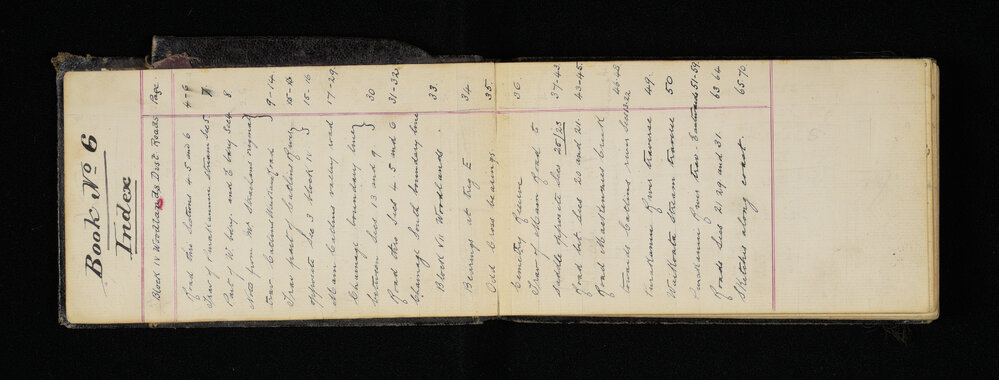 Book No 6
Index
Block IV Woodlands Dist. Roads Page
Road thro Sections 4 5 and 6 4-7
Trav of Purakaunui Stream Sec 5 7
Part of W. bdry and S bdry Sec 4 8
Notes from Mr Strachans original }
trav Catlins River and road } 9-14
Trav part of Catlins R valley } 15-16
opposite Sec 3 block IV } 15-16
Main Catlins valley road 17-29
Chainage boundary line }
between Secs 13 and 9 } 30
Road thro Secs 4 5 and 6 31-32
Chainage South boundary line
Block VII Woodlands. 33.
Bearings at Trig E 34
Odd Cross bearings 35.
Cemetery Reserve 36.
Trav of Main Road 5
Saddle opposite Secs 25/23 37-43
Road bet. Secs 20 and 21. 43-45.
Road Mac creek
towards Catlins, Secs 13-22 46-48
Purakaunui River traverse 49.
Waikoata Stream traverse 50
Purakaunui River trav. 51-59.
Roads Secs 21 29 and 31. 63 64
Sketches along coast. 65-70.